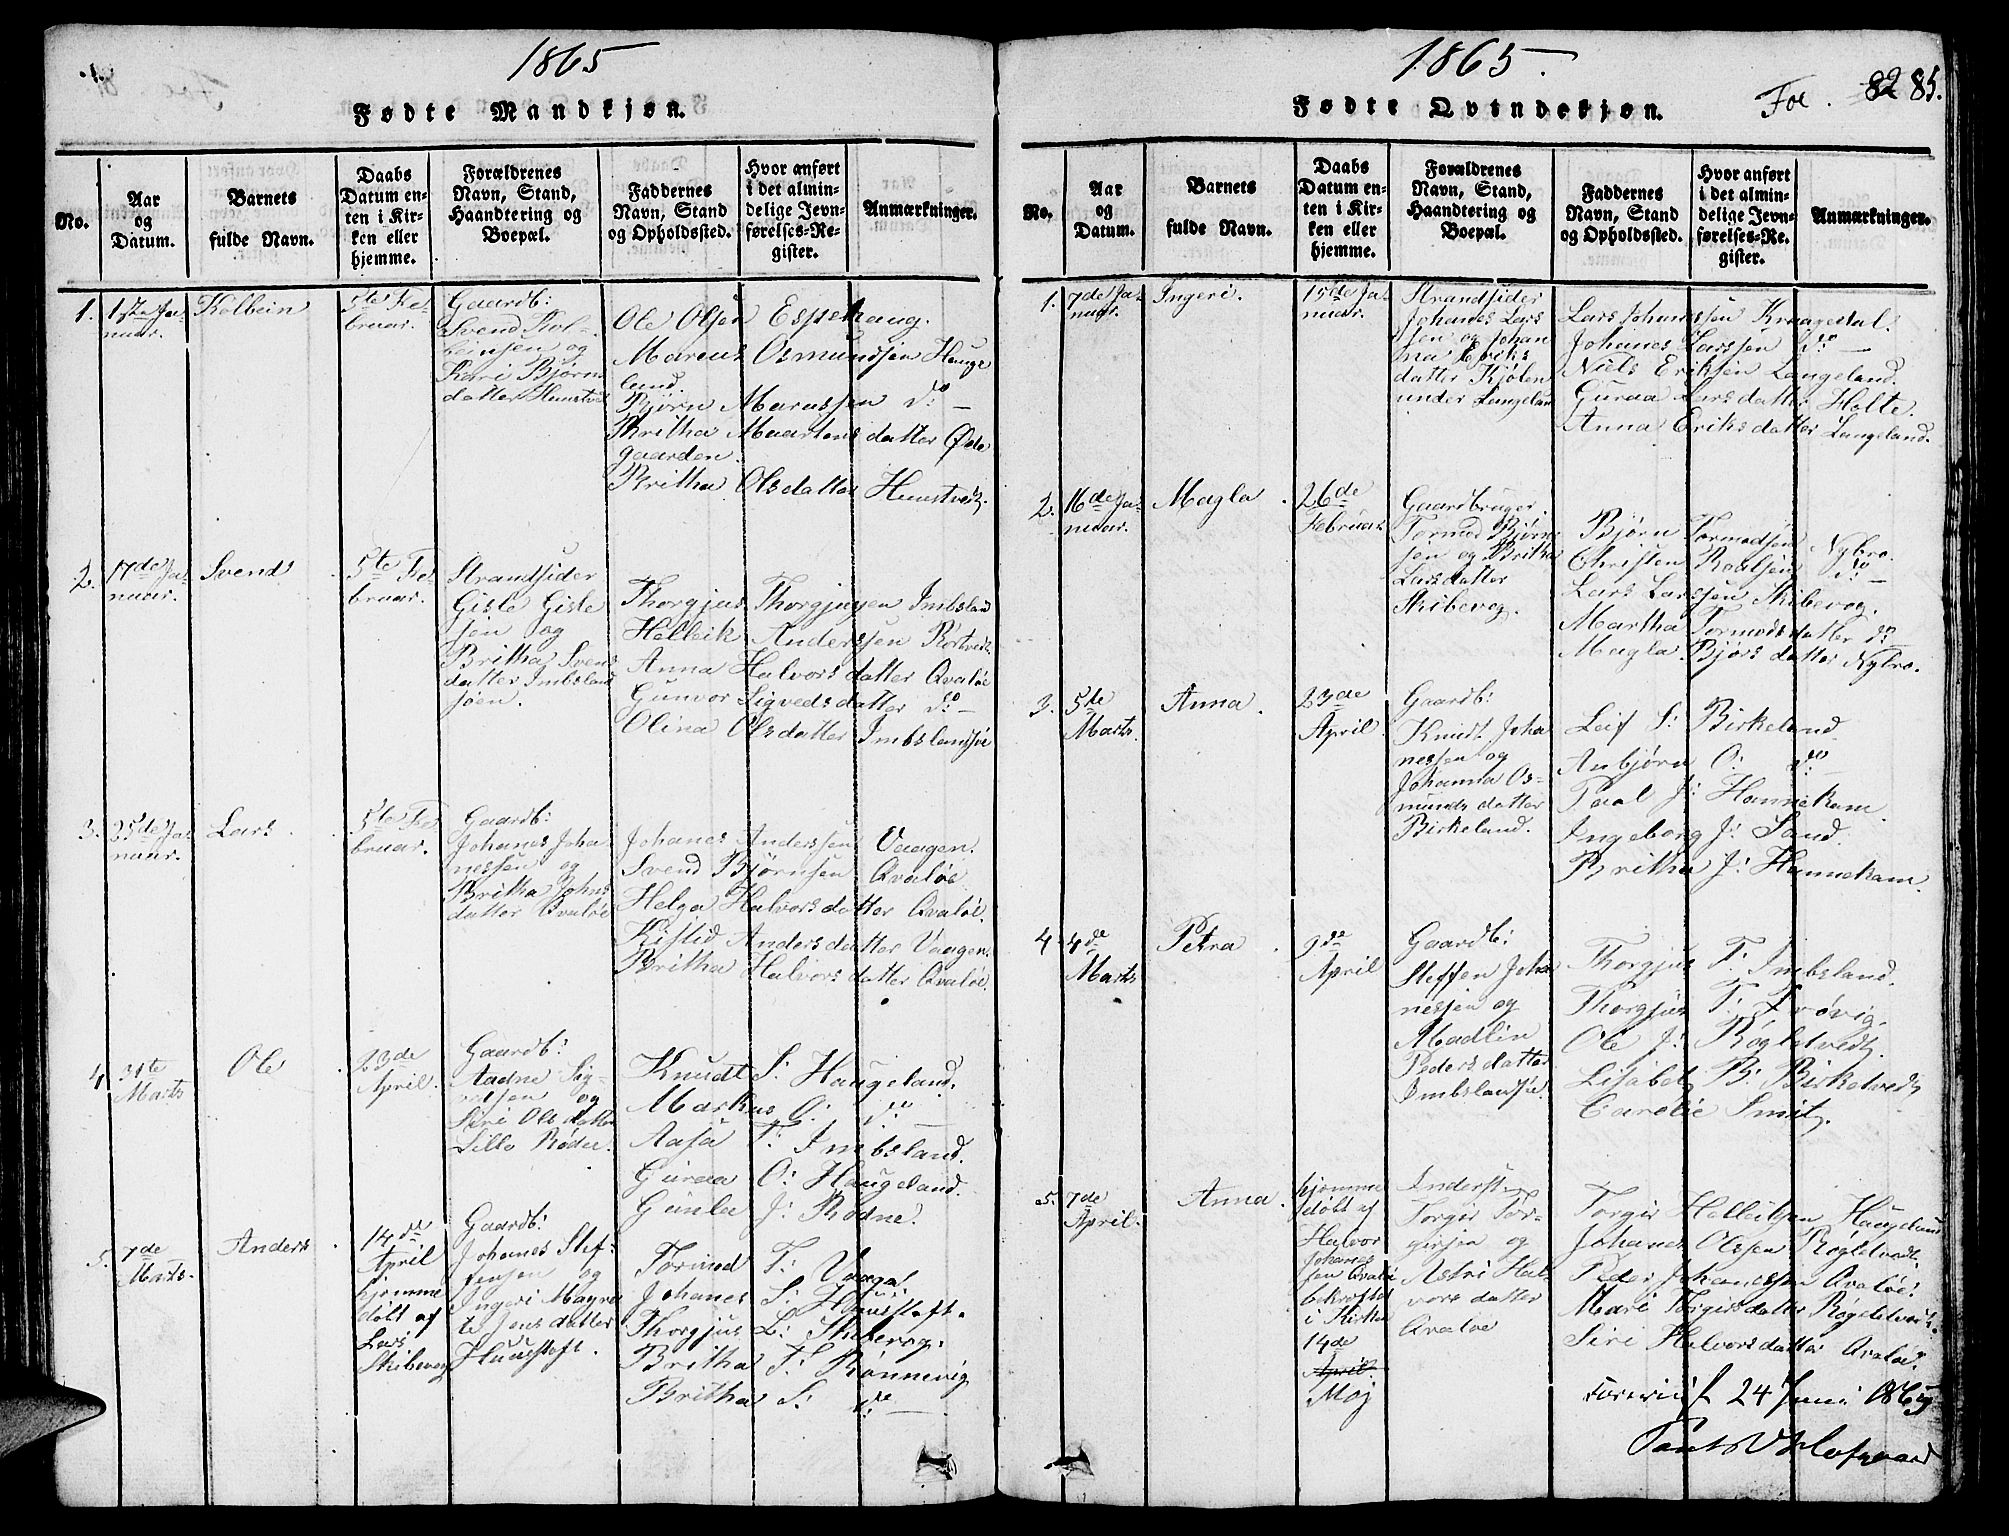 1865
Fødte Mandkjøn.
No.
Aar
og
Datum.
Barnets
fulde Navn.
Daabs
Datum en-
ten i Kir-
ken eller
hjemme.
Forældrenes
Navn, Stand,
Haandtering og
Boepæl.
Faddernes
Navn, Stand
og Opholdssted.
Hvor anført
i det almin-
delige Jevn-
førelses-Re-
gister.
Anmærkninger.
1.
1ste Ja-
nuar.
Kolbein
5te Fe-
bruar.
Gaardb:
Svend Kol-
beinsen og
Kari Bjørns
datter
Ole Olsen Espehaug.
Marcus Osmundsen Hauge
land.
Bjørn Marcussen do
Britha Maartensdatter Øde
gaarden.
Britha Olsdatter
2.
17de Ja-
nuar.
Svend
5te Fe-
bruar.
Strandsider
Gisle Gisle
sen og
Britha Svens
datter Imbsland
søen.
Thorgjus Thorgjusen Imbsland
Helleik Anderssen
Anna Halvorsdatter Qvaløe
Gunvor Sigvedsdatter do
Olina Olsdatter Imbslandsøe
3.
25de Ja-
nuar.
Lars
5te Fe-
bruar.
Gaardb:
Johanes Joha
nessen og
Britha Johns
datter Qvaløe
Johanes Anderssen Vaagen.
Svend Bjørnsen Qvaløe
Helga Halvorsdatter Qvaløe.
Kistid Andersdatter Vaagen.
Britha Halvorsdatter Qvaløe.
4
31te
Marts
Ole
23de
April.
Gaardb:
Aadne Sig-
vatsen og
Siri Olsdatter
Lille Rødne.
Knudt S: Haugeland.
Markus O: do
Aasa T: Imbsland.
Guraa O: Haugeland.
Gunla J: Rødne.
5.
7de
Marts.
Anders
14de
April
hjemme
døbt af
Lars
Skibevog
Gaardb:
Johanes Stef-
fensen og
Ingeri Magre
te Jensdatter
Huustoft.
Tormod T: Vaage
Johanes S: Huustoft.
Thorgjus L: Skibevog.
Britha T: Rønnevig
Britha S: do
1865.
Fødte Qvindekjøn.
Fol. 82 85.
No.
Aar
og
Datum.
Barnets
fulde Navn.
Daabs
Datum en-
ten i Kir-
ken eller
hjemme.
Forældrenes
Navn, Stand,
Haandtering og
Boepæl.
Faddernes
Navn, Stand
og Opholdssted.
Hvor anført
i det almin-
delige Jevn-
førelses-Re-
gister.
Anmærkninger.
1.
7de Ja-
nuar.
Ingeri.
15de Ja-
nuar.
Strandsider
Johanes Lars
sen og Johan
na Eriks
datter Kjølen
under Langeland
Lars Johanssen Kraagedal.
Johanes Larssen do
Niels Eriksen Langeland.
Guraa Larsdatter Holte.
Anna Eriksdatter Langeland.
2.
16de Ja-
nuar.
Magla
26de
Februar
Gaardbruger
Tormod Bjørn
sen og Britha
Larsdatter
Skibevog.
Bjørn Tormodsen Nybro.
Christen Roalsen do
Lars Larssen Skibevog.
Martha Tormodsdatter do
Magla Bjørsdatter Nybro.
3.
5te
Marts.
Anna
23de
April.
Gaardb:
Knudt Joha
nessen og
Johanna Os-
munds datter
Birkeland.
Leif S: Birkeland
Anbjørn O: do
Paal J: Hannekam.
Ingeborg J: Sand.
Britha J: Hannekam.
4
4de
Marts
Petra
9de
April
Gaardb:
Steffen Joha
nessen og
Madlin
Pedersdatter
Imbslandsøe.
Thorgjus T: Imbsland.
Thorgjus T: Trøvig.
Ole J: Røgletvedt.
Lisabet B: Birketvedt
Caroline Smit
5.
7de
April.
Anna
hjemme
døbt af
Halvor
Johanes
sen Qvaløe
bekræftet
i Kirken
14de
April
Maj
Torgir Tor-
girsen og
Astri Hal
vorsdatter
Qvaløe
Torgir Helleiksen Haugeland
Johanes Olssen Røgletvedt.
Peder Johanessen Qvaløe.
Mari Torgirsdatter Røgletvedt.
Siri Halvorsdatter Qvaløe.
24 Juni 1865